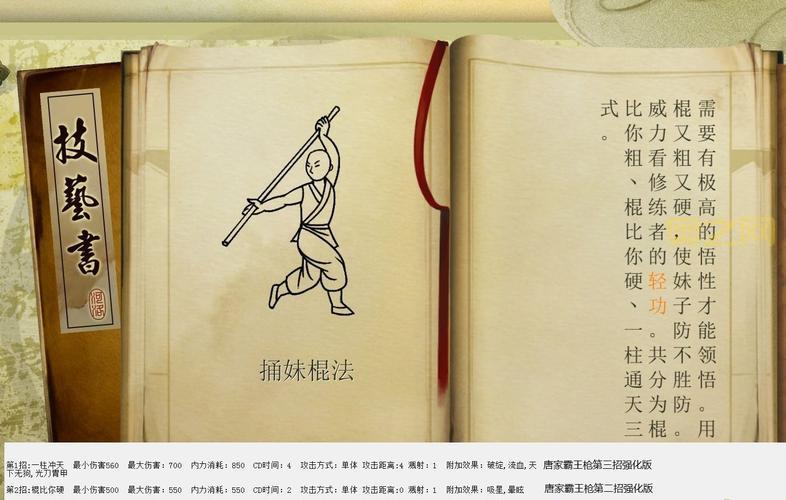 技藝書
河洛
捅妹棍法
需要有极高的悟性才能领悟。用
棍又粗又硬，使妹子防不胜防。
威力看修练者的轻功。共分为棍
比你粗、棍比你硬、一柱通天三
式。
第1招:一柱冲天 最小伤害560 最大伤害：700 内力消耗：850 CD时间：4 攻击方式：单体 攻击距离:4 溅射：1 附加效果：破绽,流血,天
下无狗,光刀胃甲 唐家霸王枪第三招强化版
第2招:棍比你硬 最小伤害500 最大伤害：550 内力消耗：550 CD时间：2 攻击方式：单体 攻击距离:0 溅射：1 附加效果：吸星,晕眩 唐家霸王枪第二招强化版